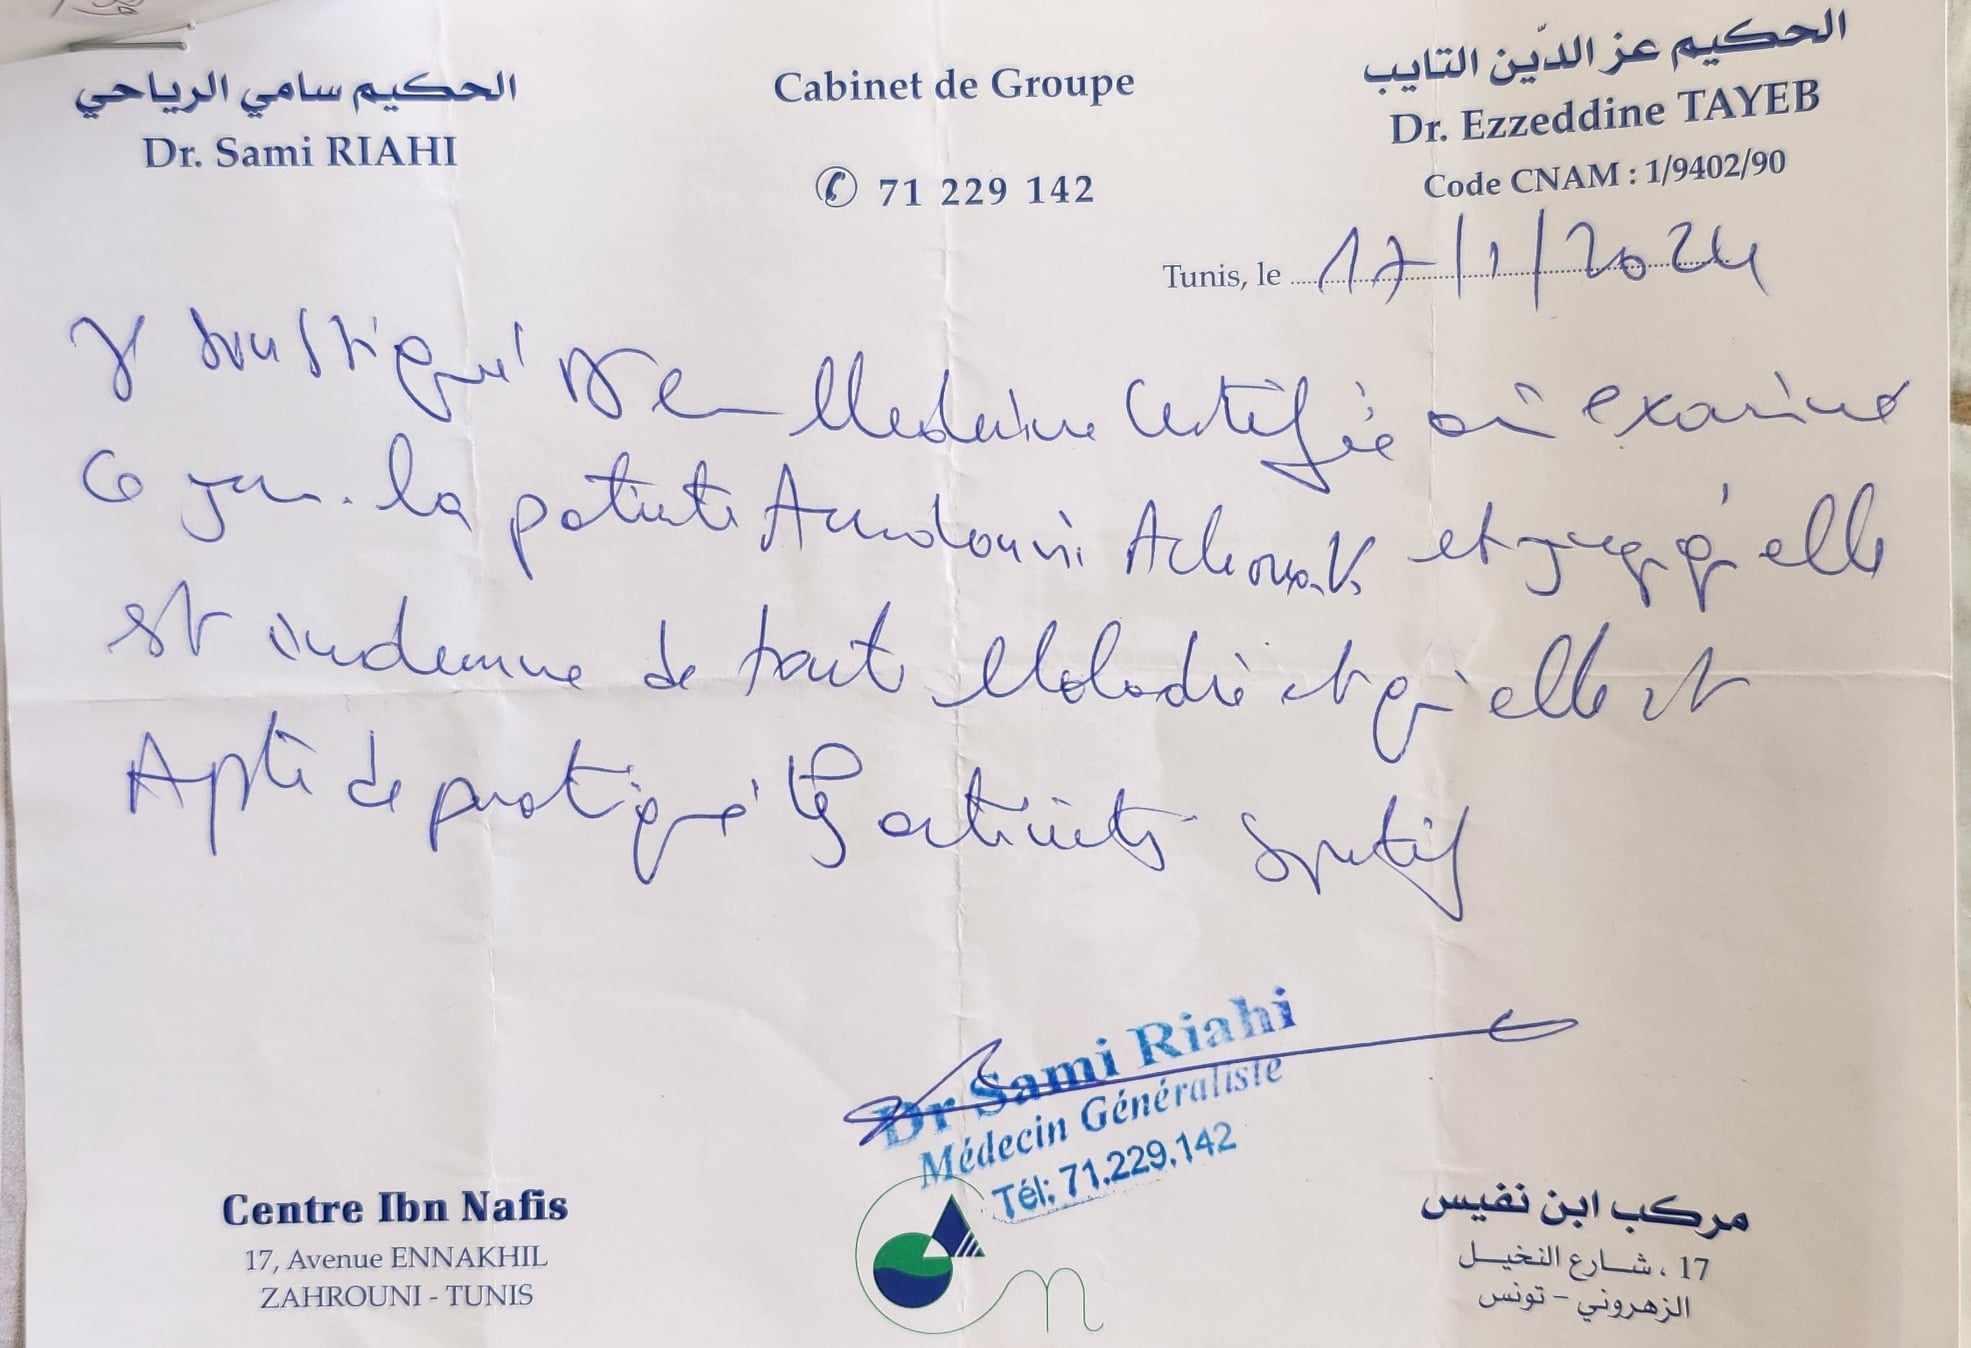 الحكيم سامي الرياحي
Dr. Sami RIAHI
Cabinet de Groupe
✆ 71 229 142
الحكيم عز الدّين التايب
Dr. Ezzeddine TAYEB
Code CNAM : 1/9402/90
Tunis, le 17/1/2024
Je soussigné Dr en Medecine Certifie avoir examiné
ce jour la patiente et juge qu'elle
est indemne de toute Maladie et qu'elle est
Apte de pratiqué activité sportif
Dr Sami Riahi
Médecin Généraliste
Tél: 71.229.142
Centre Ibn Nafis
17, Avenue ENNAKHIL
ZAHROUNI - TUNIS
مركب ابن نفيس
17 ، شارع النخيل
الزهروني - تونس